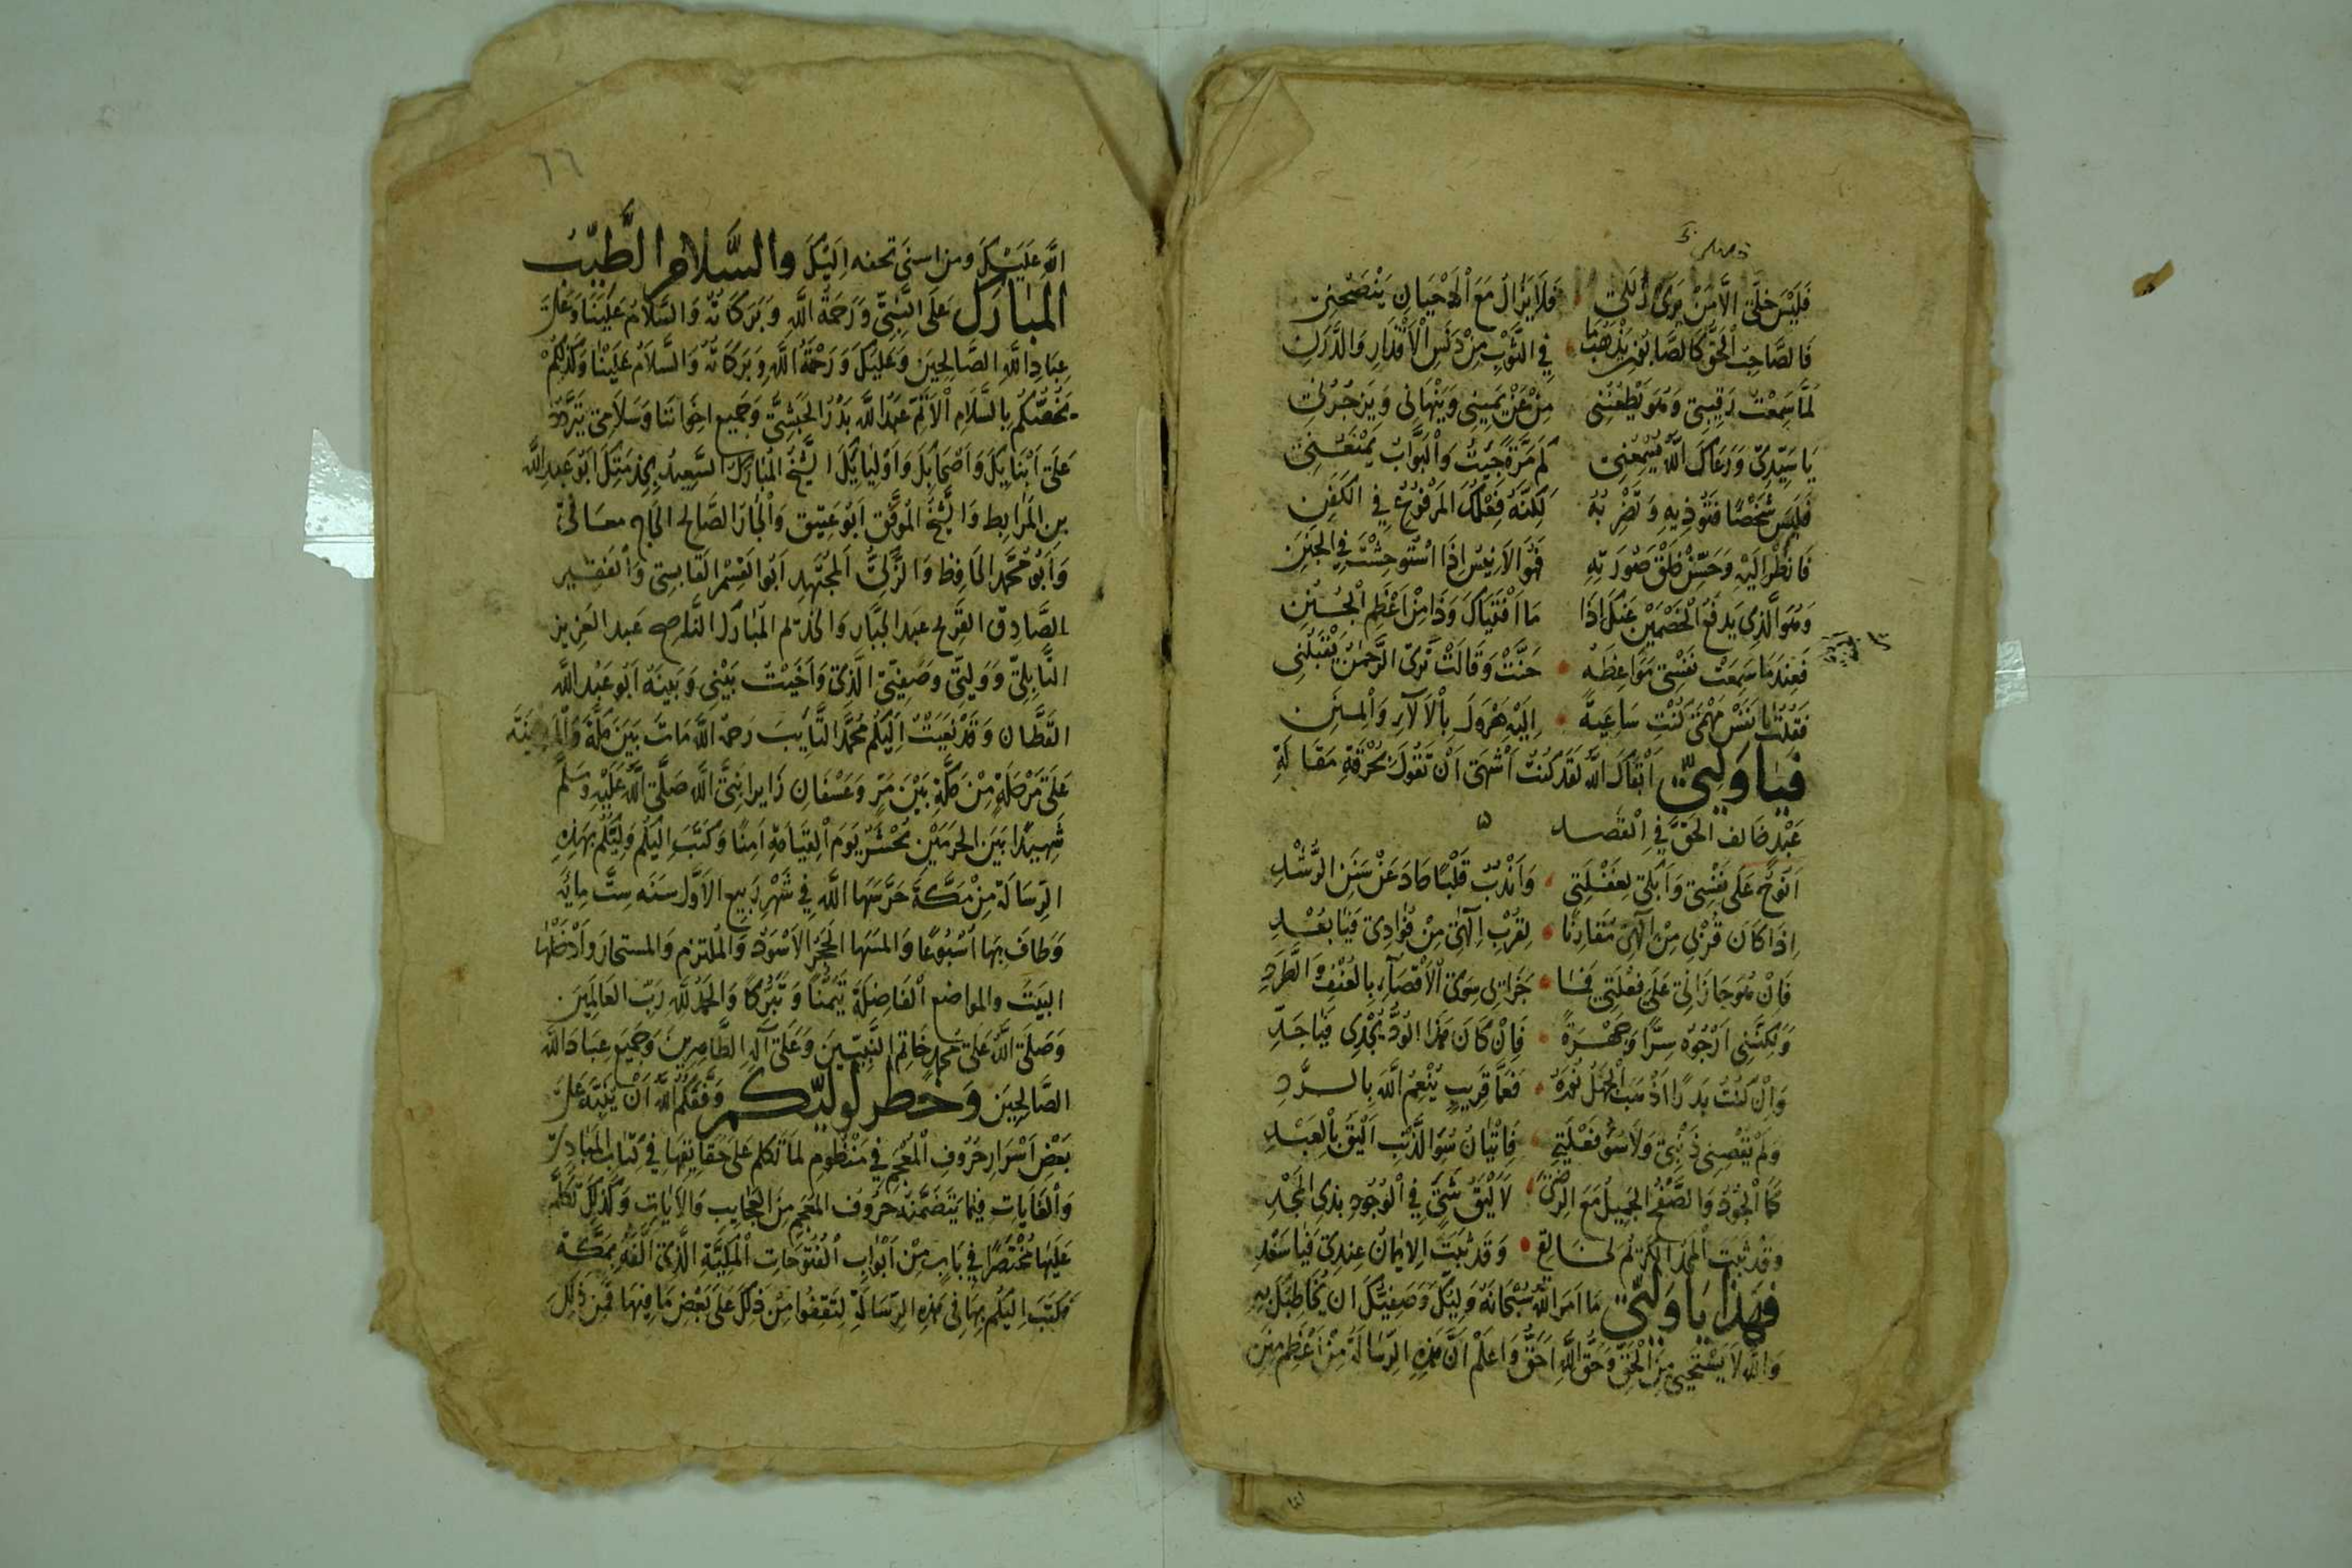 فَلَيْسَ خِلِّي إِلَّا مَنْ يَرَى زَلَلِي فَلَا يَزَالُ مَعَ الْأَحْيَانِ يَنْصَحُنِي
فَالصَّاحِبُ الْحَقُّ كَالصَّابُونِ يَذْهَبُ مَا فِي الثَّوْبِ مِنْ دَنَسِ الْأَقْذَارِ وَالدَّرَنِ
لَمَّا سَمِعْتُ رَقِيبِي وَهُوَ يَطْعُنُنِي مِنْ عَنْ يَمِينِي وَيَنْهَانِي وَيَزْجُرُنِي
يَا سَيِّدِي وَرَعَاكَ اللَّهُ تُسْمِعُنِي كَمْ مَرَّةً جِئْتُ وَالْبَوَّابُ يَمْنَعُنِي
فَلَيْسَ شَخْصًا فَتُؤْذِيهِ وَتَضْرِبُهُ لَكِنَّهُ فِعْلُكَ الْمَرْفُوعُ فِي الْكَفَنِ
فَانْظُرْ إِلَيْهِ وَحَسِّنْ خَلْقَ صُورَتِهِ فَهُوَ الْأَنِيسُ إِذَا اسْتُوحِشْتَ فِي الْجَنَنِ
وَهُوَ الَّذِي يَدْفَعُ الْخَصْمَيْنِ عَنْكَ إِذَا مَا أَفْتَيَاكَ وَذَا مِنْ أَعْظَمِ الْجُنَنِ
فَعِنْدَمَا سَمِعَتْ نَفْسِي مَوَاعِظَهُ حَنَّتْ وَقَالَتْ تَرَى الرَّحْمَنُ يَقْبَلُنِي
فَقُلْتُ يَا نَفْسُ مَهْمَى كُنْتِ سَاعِيَةً إِلَيْهِ هَرْوَلَ بِالْآلَاءِ وَالْمِنَنِ
فَيَا وَلِيِّي أَبْقَاكَ اللَّهُ لَقَدْ كُنْتُ أَشْتَهِي أَنْ تَقُولَ بِحُرْقَةٍ مَقَالَةِ
عَبْدٍ خَالَفَ الْحَقَّ فِي الْقَصْدِ
أَنُوحُ عَلَى نَفْسِي وَأَبْكِي لِغَفْلَتِي وَأَنْدُبُ قَلْبًا حَادَ عَنْ سَنَنِ الرُّشْدِ
إِذَا كَانَ قُرْبِي مِنْ إِلَهِي مُقَارِنًا لِقُرْبِ إِلَهِي مِنْ فُؤَادِي فَيَا بُعْدِ
فَإِنْ هُوَ جَازَانِي عَلَى فِعْلَتِي فَمَا جَزَائِي سِوَى الْإِقْصَاءِ بِالْعُنْفِ وَالطَّرْدِ
وَلَكِنَّنِي أَرْجُوهُ سِرًّا وَجَهْرَةً فَإِنْ كَانَ هَذَا الْوُدُّ يُجْدِي فَيَا جَدِّ
وَإِنْ كُنْتُ بَدْرًا أَذْهَبَ الْجَهْلُ نُورَهُ فَعَمَّا قَرِيبٍ يُنْعِمُ اللَّهُ بِالرَّدِّ
وَلَمْ يُقْصِنِي ذَنْبِي وَلَا سُوءُ فِعْلَتِي فَإِتْيَانُ سُوءِ الذَّنْبِ أَلْيَقُ بِالْعَبْدِ
كَمَا الْجُودُ وَالصَّفْحُ الْجَمِيلُ مَعَ الرِّضَى لَأَلْيَقُ شَيْءٍ فِي الْوُجُودِ بِذِي الْمَجْدِ
وَقَدْ ثَبَتَ الْمَجْدُ الْكَرِيمُ لِخَالِقِي وَقَدْ ثَبَتَ الْإِيمَانُ عِنْدِي فَيَا سَعْدِ
فَهَذَا يَا وَلِيِّي مَا أَمَرَ اللَّهُ سُبْحَانَهُ وَلِيَّكَ وَصَفِيَّكَ أَنْ يُخَاطِبَكَ بِهِ
وَاللَّهُ لَا يَسْتَحْيِي مِنَ الْحَقِّ وَحَقُّ اللَّهِ أَحَقُّ وَاعْلَمْ أَنَّ هَذِهِ الرِّسَالَةَ مِنْ أَعْظَمِ مِنَنِ
٦٦
اللَّهِ عَلَيْكَ وَمِنْ أَسْنَى تُحَفِهِ إِلَيْكَ وَالسَّلَامُ الطَّيِّبُ
الْمُبَارَكُ عَلَى النَّبِيِّ وَرَحْمَةُ اللَّهِ وَبَرَكَاتُهُ وَالسَّلَامُ عَلَيْنَا وَعَلَى
عِبَادِ اللَّهِ الصَّالِحِينَ وَعَلَيْكَ وَرَحْمَةُ اللَّهِ وَبَرَكَاتُهُ وَالسَّلَامُ عَلَيْنَا وَكَذَلِكُمْ
يَخُصُّكُمْ بِالسَّلَامِ الْأَتَمِّ عَبْدُ اللَّهِ بَدْرُ الْحَبَشِيُّ وَجَمِيعُ إِخْوَانِنَا وَسَلَامِي يَتَرَدَّدُ
عَلَى أَبْنَائِكَ وَأَصْحَابِكَ وَأَوْلِيَائِكَ الشَّيْخُ الْمُبَارَكُ السَّعِيدُ بِخِدْمَتِكَ أَبُو عَبْدِ اللَّهِ
بن الْمُرَابِطِ وَالشَّيْخُ الْمُوَفَّقُ أَبُو عَتِيقٍ وَالْجَارُ الصَّالِحُ الْحَاجُّ مُعَافَى
وَأَبُو مُحَمَّدٍ الْحَافِظُ وَالزَّكِيُّ الْمُجْتَهِدُ أَبُو الْقَسْمِ الْقَابِسِي وَالْفَقِيرُ
الصَّادِقُ الْفَرِحُ عَبْدُ الْجَبَّارِ وَالْخَدِيمُ الْمُبَارَكُ النَّاصِحُ عَبْدُ الْعَزِيزِ
النَّابِلِيُّ وَوَلِيِّي وَصَفِيِّي الَّذِي وَأَخَيْتُ بَيْنِي وَبَيْنَهُ أَبُو عَبْدِ اللَّهِ
الْقَطَّانُ وَقَدْ نَعَيْتُ إِلَيْكُمْ مُحَمَّدَ التَّائِبَ رَحِمَهُ اللَّهُ مَاتَ بَيْنَ مَكَّةَ وَالْمَدِينَةِ
عَلَى مَرْحَلَةٍ مِنْ مَكَّةَ بَيْنَ مَرٍّ وَعُسْفَانَ زَائِرًا نَبِيَّ اللَّهِ صَلَّى اللَّهُ عَلَيْهِ وَسَلَّمَ
شَهِيدًا بَيْنَ الْحَرَمَيْنِ يُحْشَرُ يَوْمَ الْقِيَامَةِ آمِنًا وَكَتَبَ إِلَيْكُمْ وَلِيُّكُمْ بِهَذِهِ
الرِّسَالَةِ مِنْ مَكَّةَ حَرَّسَهَا اللَّهُ فِي شَهْرِ رَبِيعِ الْأَوَّلِ سَنَةَ سِتِّ مِائَةٍ
وَطَافَ بِهَا أُسْبُوعًا وَأَلْمَسَهَا الْحَجَرَ الْأَسْوَدَ وَالْمُلْتَزَمَ وَالْمُسْتَجَارَ وَأَدْخَلَهَا
الْبَيْتَ وَالْمَوَاضِعَ الْفَاضِلَةَ تَيَمُّنًا وَتَبَرُّكًا وَالْحَمْدُ لِلَّهِ رَبِّ الْعَالَمِينَ
وَصَلَّى اللَّهُ عَلَى مُحَمَّدٍ خَاتِمِ النَّبِيِّينَ وَعَلَى آلِهِ الطَّاهِرِينَ وَجَمِيعِ عِبَادِ اللَّهِ
الصَّالِحِينَ وَخَطَرَ لِوَلِيِّكُمْ وَفَّقَكُمُ اللَّهُ أَنْ يُنَبِّهَ عَلَى
بَعْضِ أَسْرَارِ حُرُوفِ الْمُعْجَمِ فِي مَنْظُومٍ لَمَّا تَكَلَّمَ عَلَى حَقَائِقِهَا فِي كِتَابِ الْمَبَادِئ
وَالْغَايَاتِ فِيمَا يَتَضَمَّنُهُ حُرُوفُ الْمُعْجَمِ مِنَ الْعَجَائِبِ وَالْآيَاتِ وَكَذَلِكَ تَكَلَّمَ
عَلَيْهَا مُخْتَصَرًا فِي بَابٍ مِنْ أَبْوَابِ الْفُتُوحَاتِ الْمَكِّيَّةِ الَّذِي أَلَّفَهُ بِمَكَّةَ
فَكَتَبَ إِلَيْكُمْ بِهَا فِي هَذِهِ الرِّسَالَةِ لِتَقِفُوا مِنْ ذَلِكَ عَلَى بَعْضِ مَا فِيهَا فَمِنْ ذَلِكَ